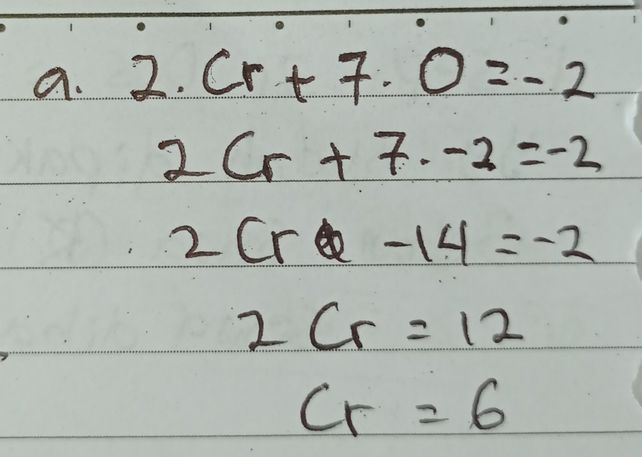 a. 2. Cr + 7. O = -2
2 Cr + 7. -2 = -2
2 Cr -14 = -2
2 Cr = 12
Cr = 6